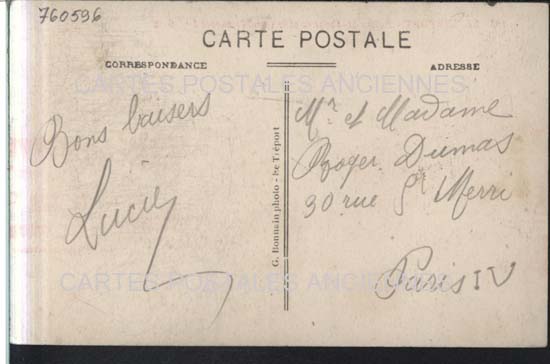 760596
CARTE POSTALE
CORRESPONDANCE
ADRESSE
CARTES POSTALES ANCIENNES
Bons baisers
Lucie
G. Bonnain photo - Le Tréport
Mr et Madame
Roger Dumas
30 rue St Merri
Paris IV
CARTES POSTALES ANCIENNES